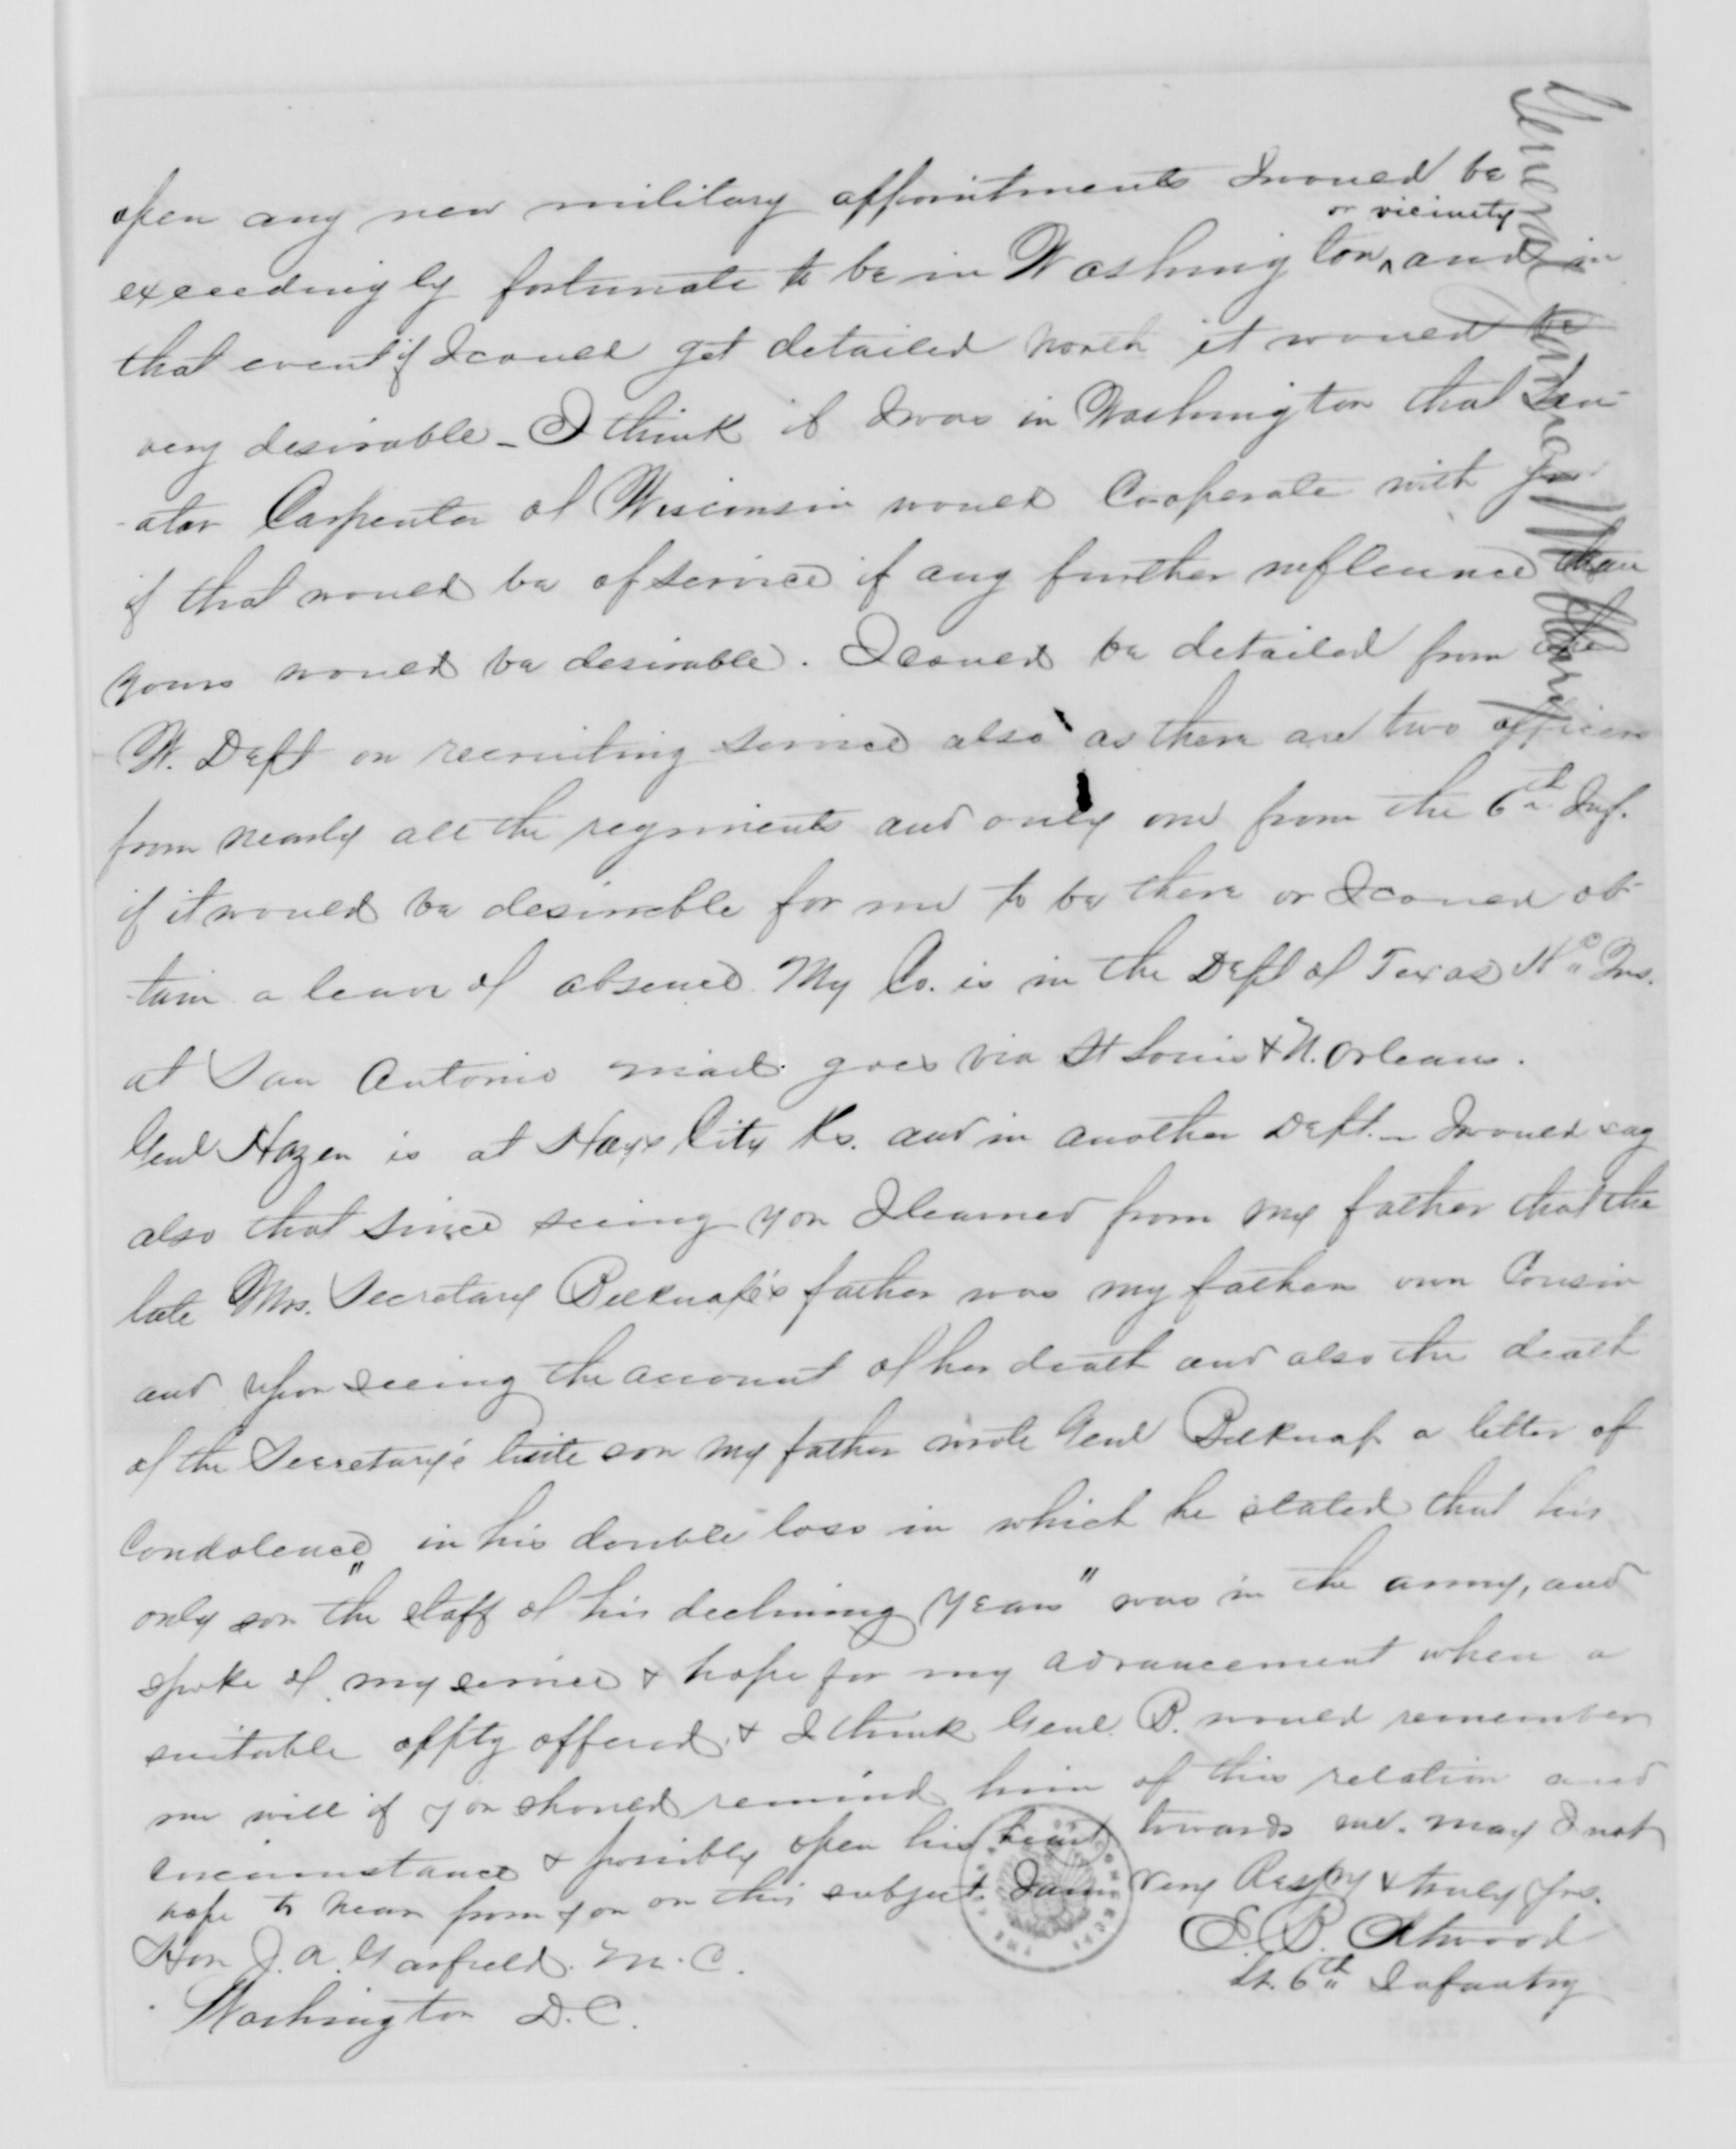 open any new military appointments I would be
exceedingly fortunate to be in Washington or vicinity and in
that event if I could get detailed North it would be
very desirable - I think if I was in Washington that Sen-
-ator Carpenter of Wisconsin would Co-operate with you
if that would be of service if any further influence than
yours would be desirable. I could be detailed from the
W. Dept on recruiting service also as there are two officers
from nearly all the regiments and only one from the 6th Inf.
if it would be desirable for me to be there or I could ob-
-tain a leave of absence. My Co. is in the Dept of Texas
at San Antonio mail goes via St Louis & N. Orleans.
Genl Hazen is at Hays City Ks. and in another Dept. - I would say
also that since seeing you I learned from my father that the
late Mrs. Secretary Belknap's father was my fathers own Cousin
and upon seeing the account of her death and also the death
of the Secretary's little son my father wrote Genl Belknap a letter of
Condolence in his double loss in which he stated that his
only son "the staff of his declining years" was in the army, and
spoke of my service & hope for my advancement when a
suitable oppty offered & I think Genl. B. would remember
me well if you should remind him of this relation and
circumstance & possibly open his heart towards me. May I not
hope to hear from you on this subject. I am Very Respy & truly Yrs.
E. B. Atwood
Lt. 6th Infantry
Hon J. A. Garfield. M. C.
Washington D. C.
General